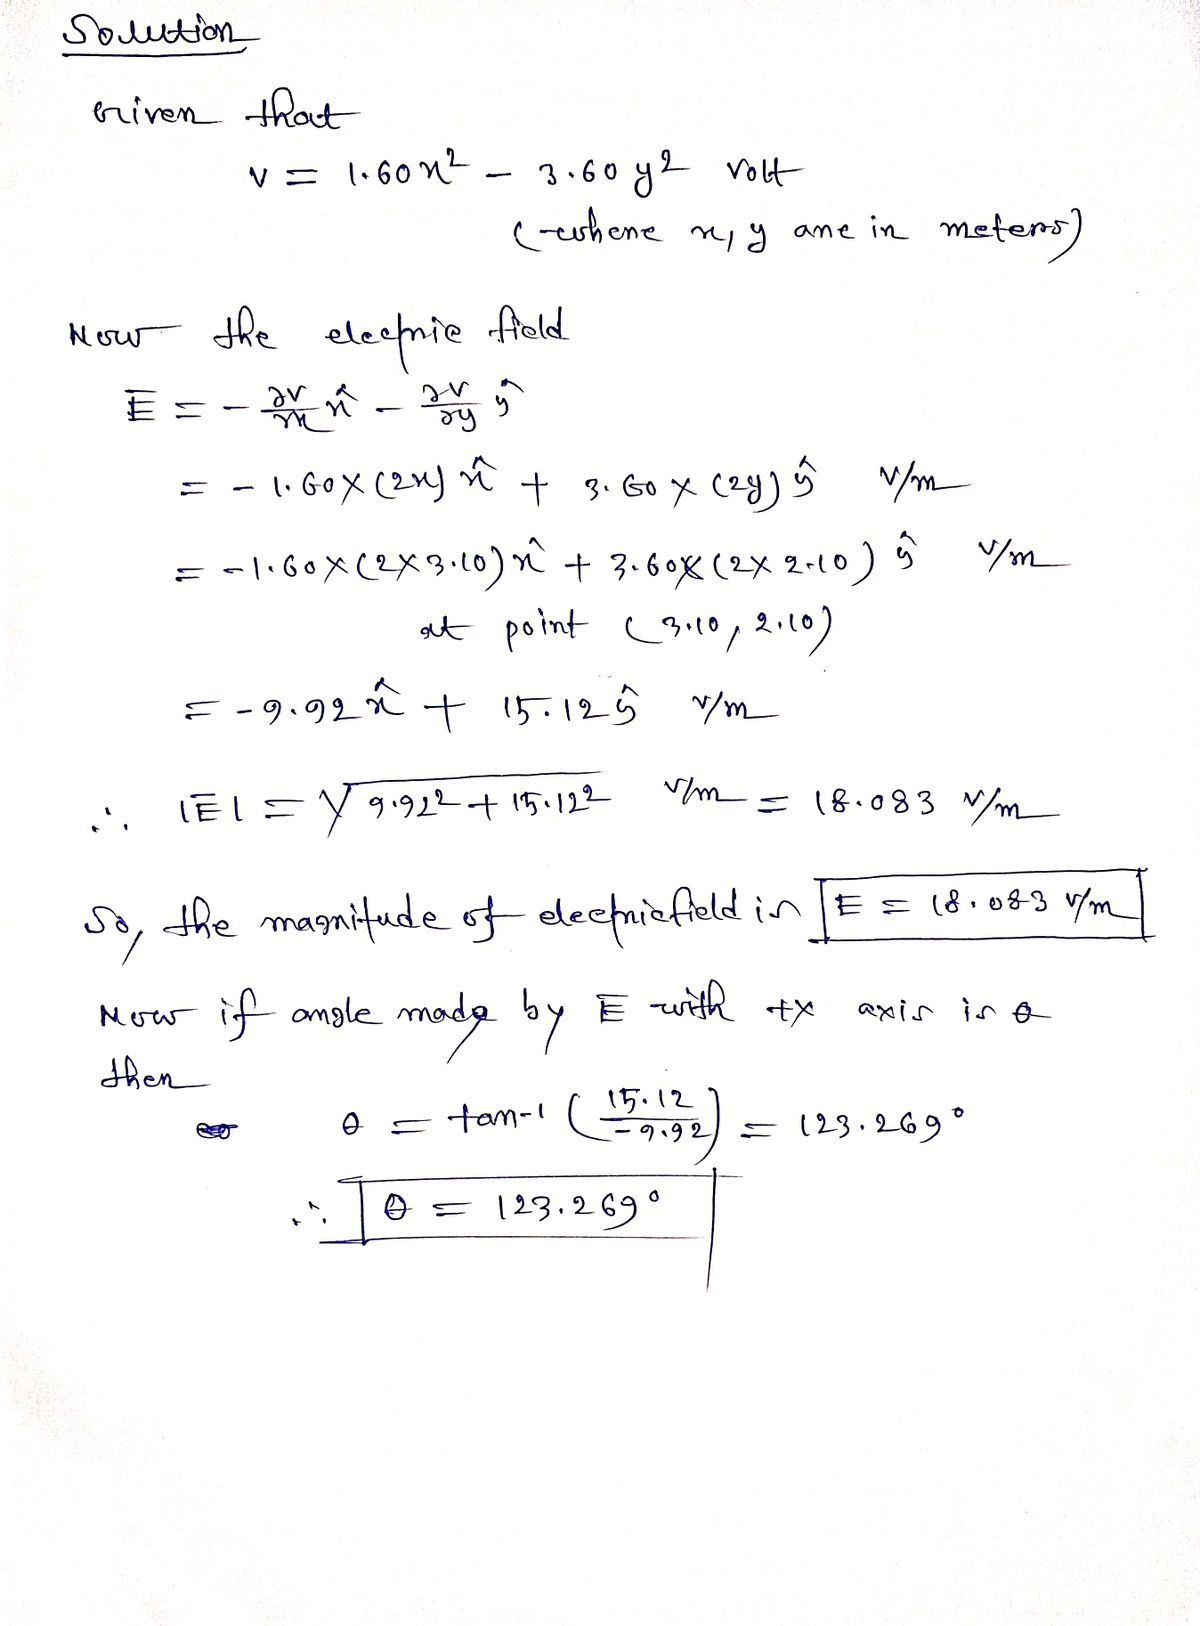 Solution
Given that
V = 1.60x² - 3.60 y² volt
(where x, y are in meters)
Now the electric field
E̅ = - ∂V/∂x x̂ - ∂V/∂y ŷ
= - 1.60 × (2x) x̂ + 3.60 × (2y) ŷ V/m
= - 1.60 × (2 × 3.10) x̂ + 3.60 × (2 × 2.10) ŷ V/m
at point (3.10, 2.10)
= - 9.92 x̂ + 15.12 ŷ V/m
∴ |E̅| = √9.92² + 15.12² V/m = 18.083 V/m
So, the magnitude of electric field is E = 18.083 V/m
Now if angle made by E̅ with +x axis is θ
then
θ = tan-1 (15.12/-9.92) = 123.269°
∴ θ = 123.269°